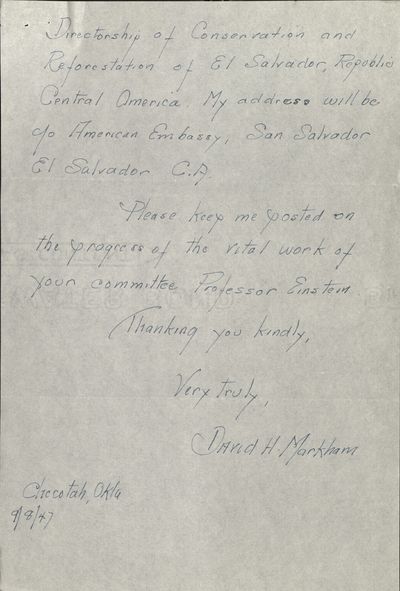 Directorship of Conservation and
Reforestation of El Salvador, Republic
Central America. My address will be
c/o American Embassy, San Salvador
El Salvador C.A.
Please keep me posted on
the progress of the vital work of
your committee Professor Einstein.
Thanking you kindly,
Very truly,
David H. Markham
Checotah, Okla
9/8/47